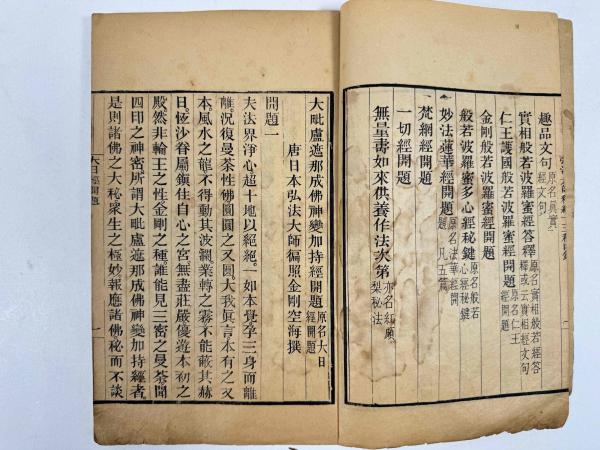 趣品文句 原名眞實經文句
實相般若波羅蜜經答釋 原名實相般若經答釋或云實相經文句
仁王護國般若波羅蜜經開題 原名仁王經開題
金剛般若波羅蜜經開題
般若波羅蜜多心經秘鍵 原名般若心經秘鍵
妙法蓮華經開題 原名法華經開題 凡五篇
梵網經開題
一切經開題
無量壽如來供養作法次第 亦名紅頗梨秘法
大毗盧遮那成佛神變加持經開題 原名大日經開題
唐日本弘法大師徧照金剛空海撰
開題一
夫法界淨心超十地以絕絕。一如本覺孕三身而離
離。況復曼荼性佛圓圓之又圓。大我眞言本有之又
本。風水之龍不得動其波瀾。業轉之霧不能蔽其赫
日。恆沙眷屬鎭住自心之宮無盡莊嚴優遊本初之
殿。然非輪王之性金剛之種誰能見三密之曼荼聞
四印之神密。所謂大毗盧遮那成佛神變加持經者
是則諸佛之大秘衆生之極妙報應諸佛秘而不談
大日經開題
一